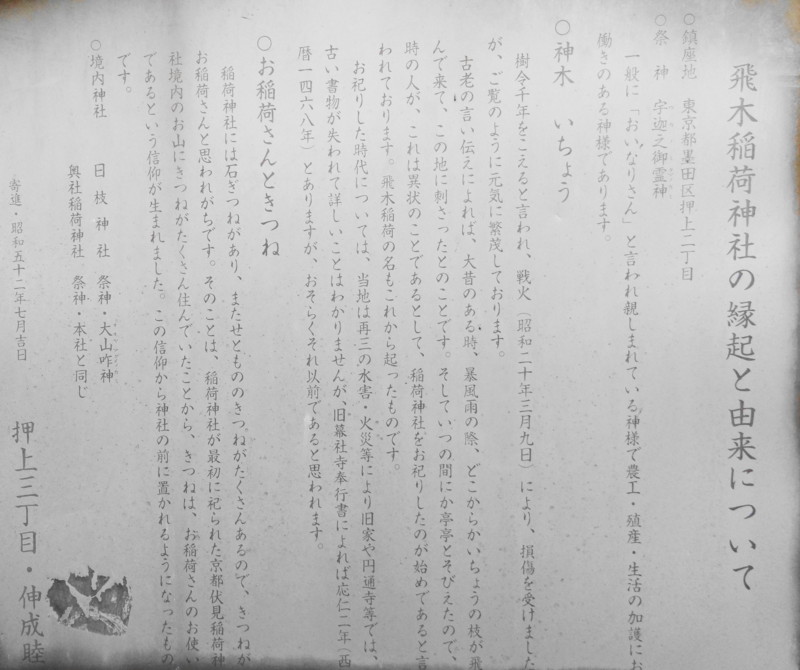 飛木稲荷神社の縁起と由来について
○鎮座地 東京都墨田区押上二丁目
○祭 神 宇迦之御霊神
一般に「おいなりさん」と言われ親しまれている神様で農工・殖産・生活の加護にお
働きのある神様であります。
○神木 いちょう
樹令千年をこえると言われ、戦火（昭和二十年三月九日）により、損傷を受けました
が、ご覧のように元気に繁茂しております。
古老の言い伝えによれば、大昔のある時、暴風雨の際、どこからかいちょうの枝が飛
んで来て、この地に刺さったとのことです。そしていつの間にか亭亭とそびえたので、
時の人が、これは異状のことであるとして、稲荷神社をお祀りしたのが始めであると言
われております。飛木稲荷の名もこれから起ったものです。
お祀りした時代については、当地は再三の水害・火災等により旧家や円通寺等では、
古い書物が失われて詳しいことはわかりませんが、旧幕社寺奉行書によれば応仁二年（西
暦一四六八年）とありますが、おそらくそれ以前であると思われます。
○お稲荷さんときつね
稲荷神社には石ぎつねがあり、またせともののきつねがたくさんあるので、きつねが
お稲荷さんと思われがちです。そのことは、稲荷神社が最初に祀られた京都伏見稲荷神
社境内のお山にきつねがたくさん住んでいたことから、きつねは、お稲荷さんのお使い
であるという信仰が生まれました。この信仰から神社の前に置かれるようになったもの
です。
○境内神社 日枝神社 祭神・大山咋神
奥社稲荷神社 祭神・本社と同じ
寄進・昭和五十二年七月吉日
押上三丁目・伸成睦